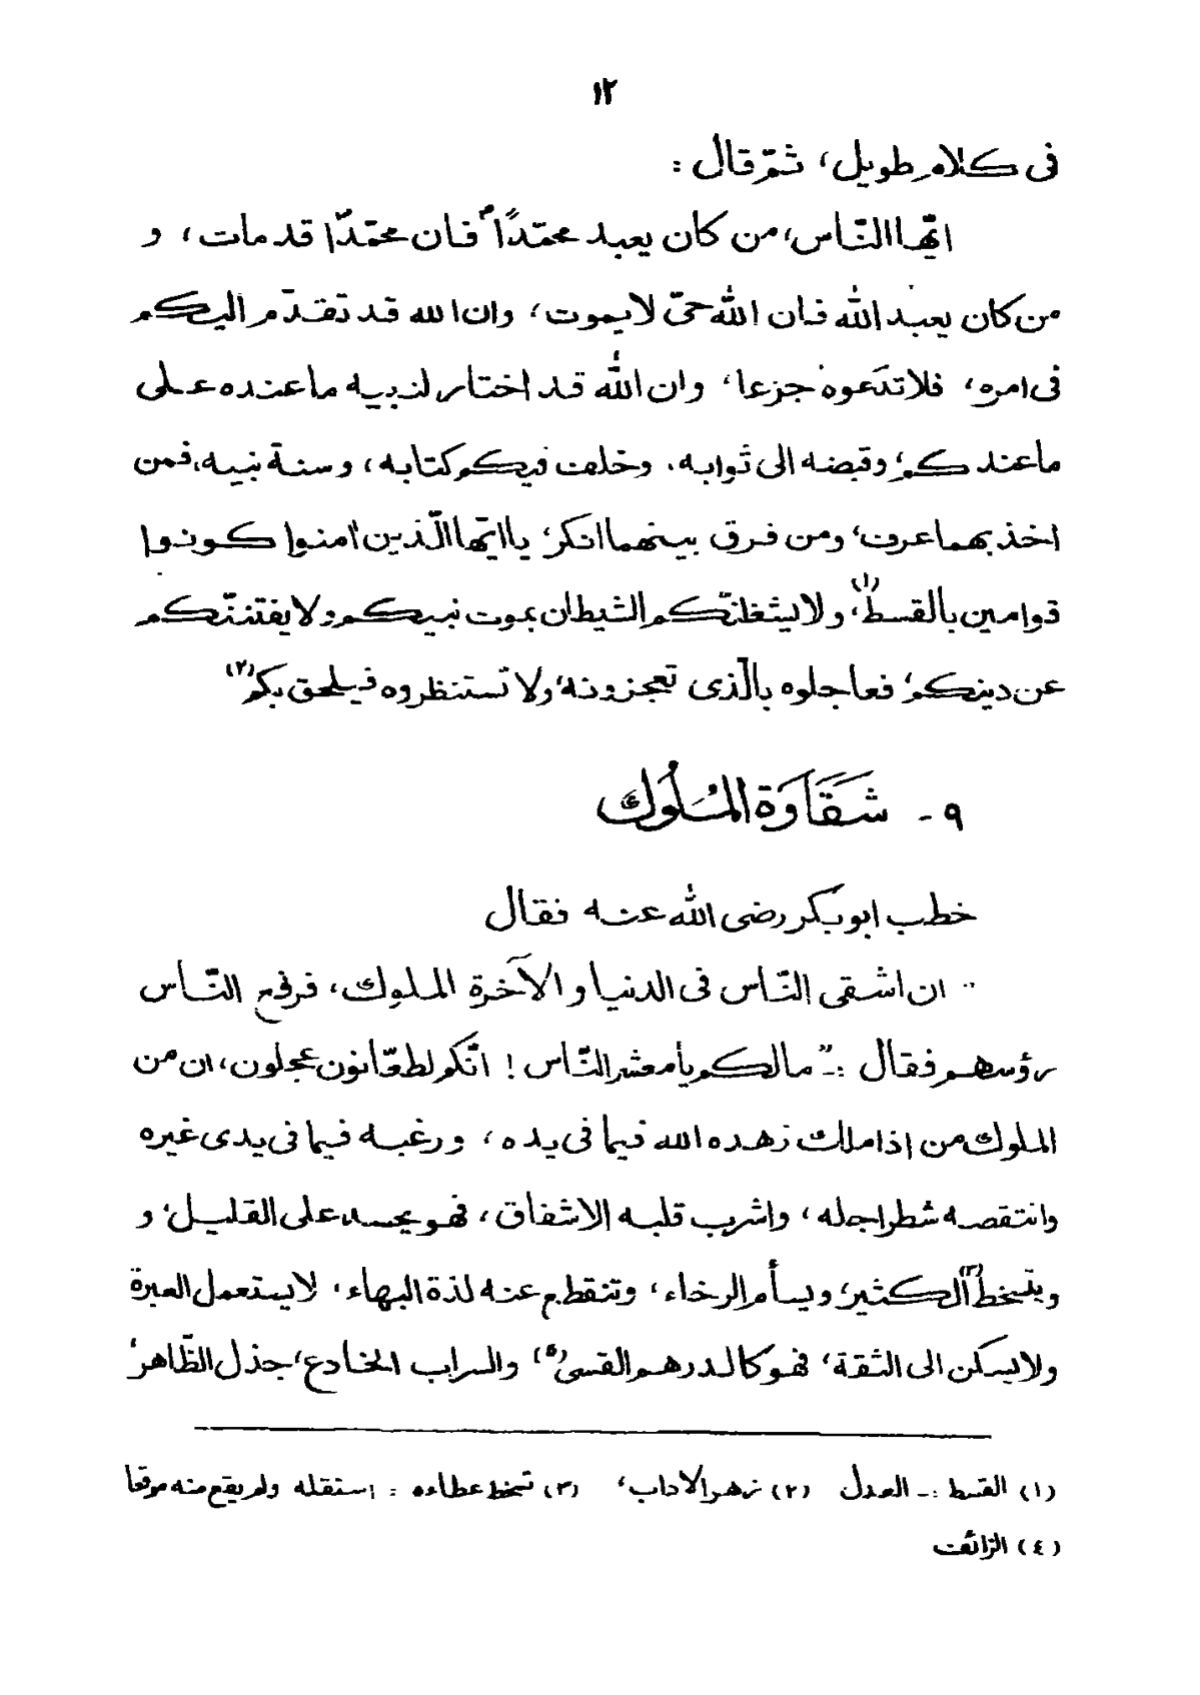 ١٢
فی كلام طويل، ثمّ قال :
ايّها النّاس، من كان يعبد محمّدًا فان محمّدًا قد مات، و
من كان يعبد الله فان الله حیّ لا يموت، وان الله قد تقدّم اليكم
فی امره، فلا تدعوه جزعا، وان الله قد اختار لنبيه ما عنده علی
ما عندكم، وقبضه الی ثوابه، وخلف فيكم كتابه، وسنة نبيه، فمن
اخذ بهما عرف، ومن فرق بينهما انكر، يا ايّها الّذين امنوا كونوا
قوامين بالقسط(١)، ولا يشغلنّكم الشيطان بموت نبيكم ولا يفتننّكم
عن دينكم، فعاجلوه بالّذی تعجزونه، ولا تستنظروه فيلحق بكم(٢)
٩ - شَقَاوَة المُلُوك
خطب ابوبكر رضی الله عنه فقال
" ان اشقی النّاس فی الدنيا و الآخرة الملوك، فرفع النّاس
رؤسهم فقال :- "مالكم يا معشر النّاس ! انّكم لطعّانون عجلون، ان من
الملوك من اذا ملك زهده الله فيما فی يده، ورغبه فيما فی يدی غيره
وانتقصه شطر اجله، واشرب قلبه الاشفاق، فهو يحسد علی القليل، و
ويتسخط(٣) الكثير، ويسأم الرخاء، وتنقطع عنه لذة البهاء، لا يستعمل العبرة
ولا يسكن الی الثقة، فهو كالدرهم القسی(٥) والسراب الخادع، جذل الظّاهر،
(١) القسط :- العدل (٢) زهر الاداب، (٣) تسخط عطاءه : استقله ولم يقع منه موقعا
(٤) الزائف